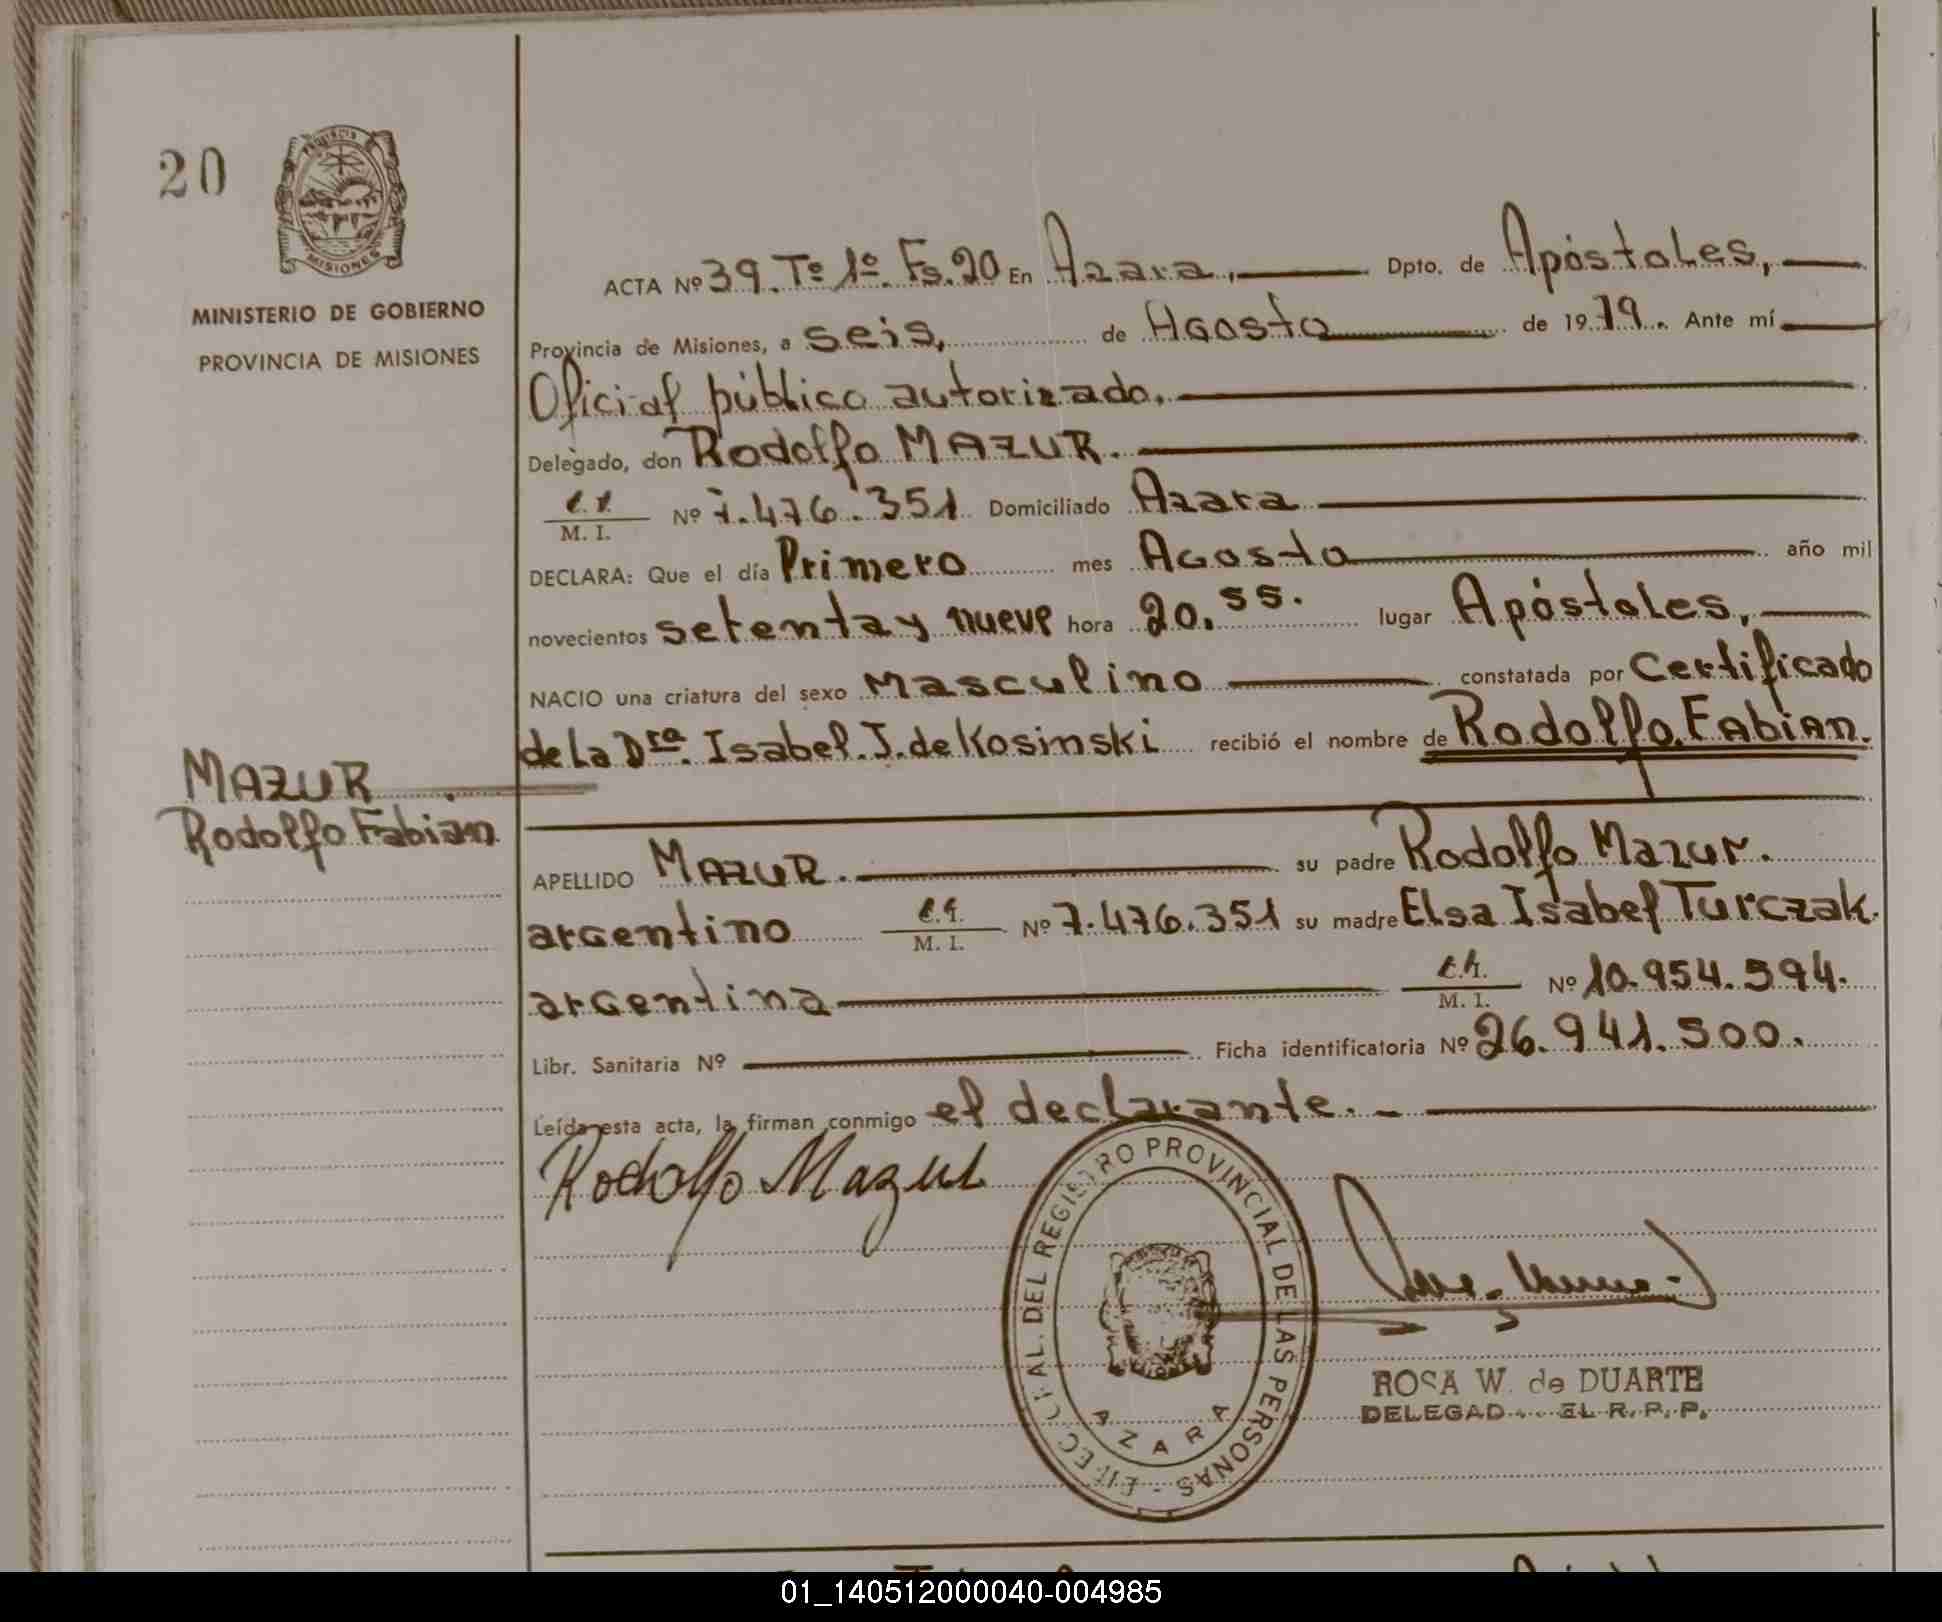 20
PROVINCIA
MISIONES
MINISTERIO DE GOBIERNO
PROVINCIA DE MISIONES
ACTA Nº 39. Tº 1º. Fs. 20 En Azara, Dpto. de Apóstoles,
Provincia de Misiones, a seis, de Agosto de 1979. Ante mí
Oficial público autorizado.
Delegado, don Rodolfo MAZUR.
M. I. Nº 7.476.351 Domiciliado Azara
DECLARA: Que el día Primero mes Agosto año mil
novecientos setenta y nueve hora 20.55. lugar Apóstoles,
NACIO una criatura del sexo Masculino constatada por Certificado
de la Dra. Isabel. J. de Kosinski recibió el nombre de Rodolfo. Fabian.
MAZUR
Rodolfo Fabian
APELLIDO MAZUR. su padre Rodolfo Mazur.
argentino M. I. Nº 7.476.351 su madre Elsa Isabel Turczak.
argentina M. I. Nº 10.954.594.
Libr. Sanitaria Nº Ficha identificatoria Nº 26.941.500.
Leída esta acta, la firman conmigo el declarante.
Rodolfo Mazur
AL. DEL REGISTRO PROVINCIAL DE LAS PERSONAS
AZARA
ROSA W. de DUARTE
DELEGAD EL R. P. P.
01_140512000040-004985